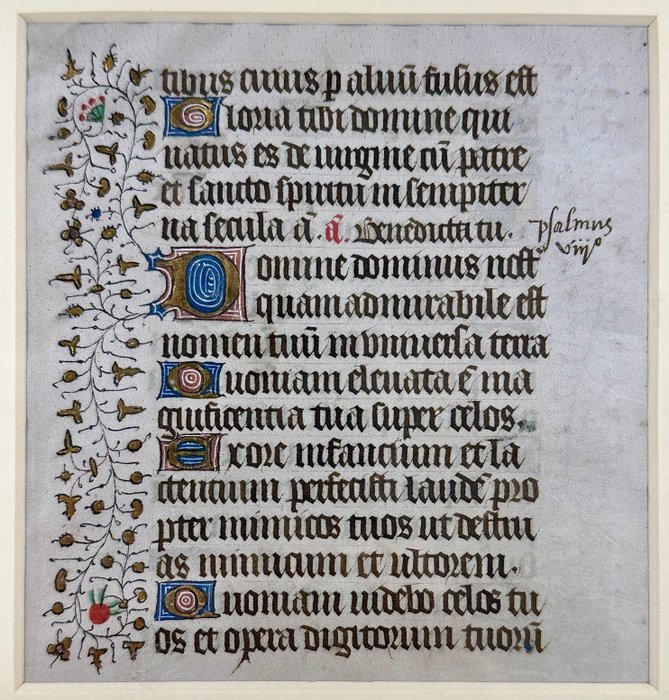 tibus cuius p alvū fusus est
Gloria tibi domine qui
natus es de uirgine cū patre
et sancto spiritu in sempiter
na secula a̅. a̅. Benedicta tu.
psalmus
viijº
Domine dominus nost̅
quam admirabile est
nomen tuū in vniuersa terra
Quoniam eleuata ē ma
gnificentia tua super celos.
Exore infancium et la
ctencium perfecisti laudē pro
pter inimicos tuos ut destru
as inimicum et ultorem.
Quoniam uidebo celos tu
os et opera digitorum tuorū